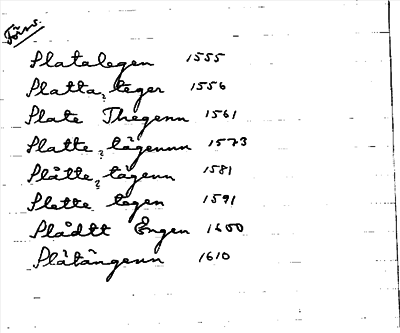 Förs.
Slatalegen 1555
Slatta teger 1556
?
Slate Thegenn 1561
Slatte tägennn 1573
?
Slåtte tägenn 1581
?
Slette tegen 1591
Slådtt Engen 1600
Slåtängenn 1610